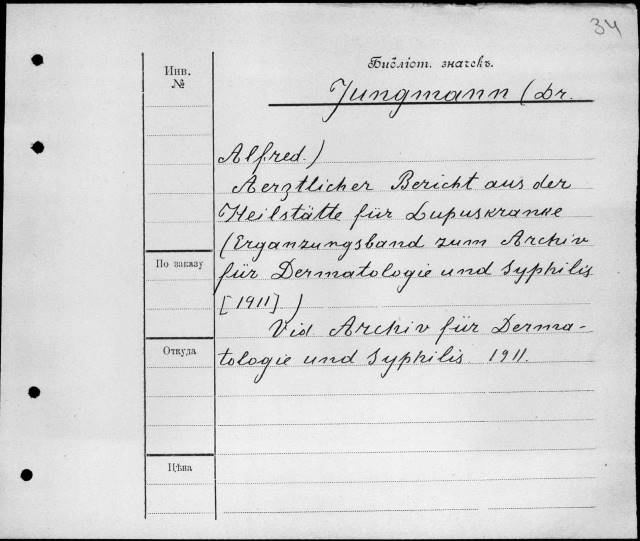 34
Библіот. значекъ.
Инв.
№
Jungmann (Dr.
Alfred.)
Aerztlicher Bericht aus der
Heilstätte für Lupuskranke
(Erganzungsband zum Archiv
По заказу
für Dermatologie und Syphilis
[1911].)
Vid. Archiv für Derma-
Откуда
tologie und Syphilis 1911.
Цѣна